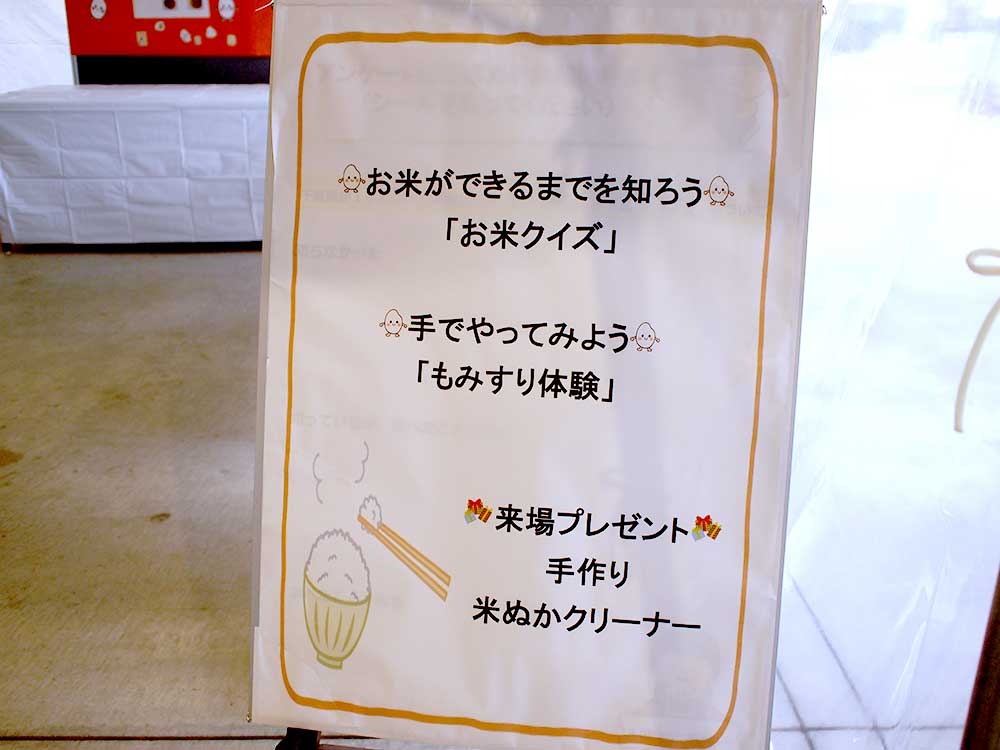 お米ができるまでを知ろう
「お米クイズ」
手でやってみよう
「もみすり体験」
来場プレゼント
手作り
米ぬかクリーナー